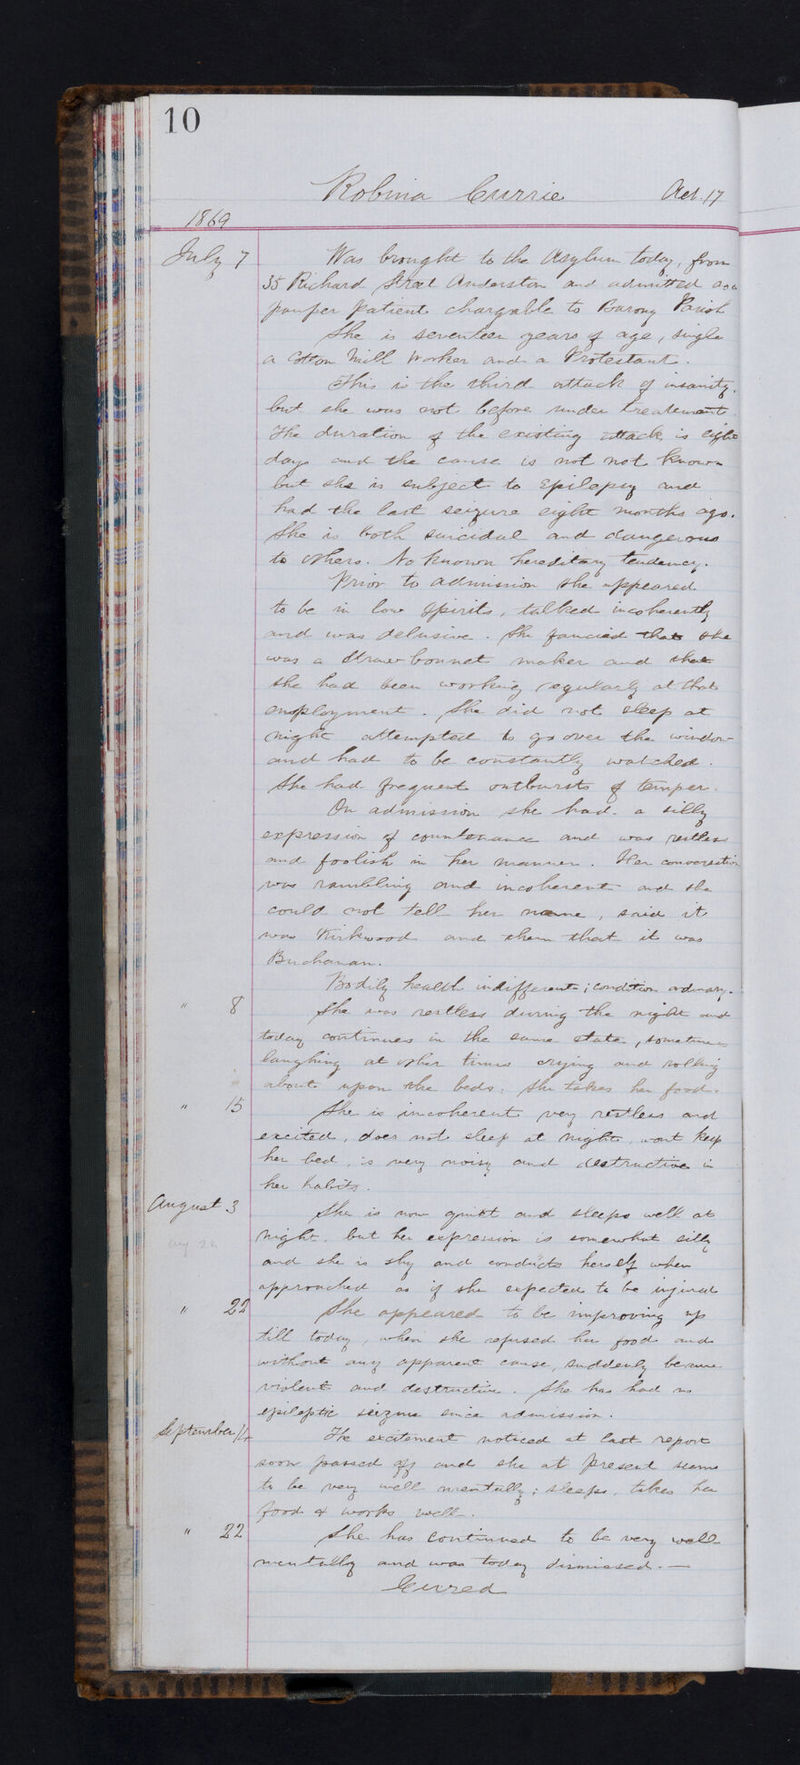 10
Robina Currie Aet. 17
1869
July 7 Was brought to the Asylum today, from
35 Richard Street Anderston and admitted as a
pauper patient chargable to Barony Parish
She is seventeen years of age, single
a Cotton Mill Worker and a Protestant.
This is the third attack of insanity.
but she was not before under treatment
The duration of the existing attack is eight
days and the cause is not not known
but she is subject to Epilepsy and
had the last seizure eight months ago.
She is both suicidal and dangerous
to others. No known hereditary tendency.
Prior to admission she appeared
to be in low spirits, talked incoherently
and was delusive. She fancied that she
was a Straw bonnet maker and that
she had been working regularly at that
employment. She did not sleep at
night attempted to go over the window
and had to be constantly watched.
She had frequent outbursts of temper.
On admission she had a silly
expression of countenance and was restless
and foolish in her manner. Her conversation
was rambling and incoherent and she
could not tell her name, said it
was Kirkwood and then that it was
Buchanan.
Bodily health indifferent; condition ordinary.
" 8 She was restless during the night and
today continues in the same state, sometimes
laughing at other times crying and rolling
about upon the beds. She takes her food.
" 15 She is incoherent very restless and
excited, does not sleep at night, wont keep
her bed, is very noisy and destructive in
her habits.
August 3 She is now quiet and sleeps well at
night, but her expression is somewhat silly
Aug 22
and she is shy and conducts herself when
approached as if she expected to be injured
" 22 She appeared to be improving up
till today, when she refused her food and
without any apparent cause, suddenly became
violent and destructive. She has had no
epileptic seizure since admission.
September 14 The excitement noticed at last report
soon passed off and she at present seems
to be very well mentally; sleeps, takes her
food & works well.
" 22 She has continued to be very well
mentally and was today dismissed.—
Cured